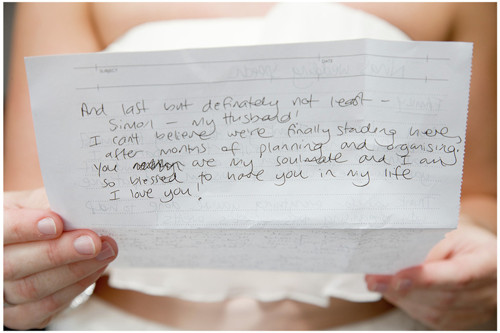 And last but definately not least -
Simon - my husband!
I can't believe we're finally standing here,
after months of planning and organising.
You are my soulmate and I am
so blessed to have you in my life
I love you!